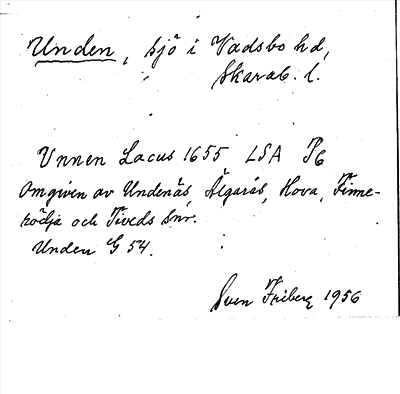 Unden, sjö i Vadsbo hd,
Skarab. l.
Unnen Lacus 1655 LSA T6
Omgiven av Undenäs, Älgarås, Hova, Finne-
rödja och Tiveds snr.
Unden G 54.
Sven Friberg 1956